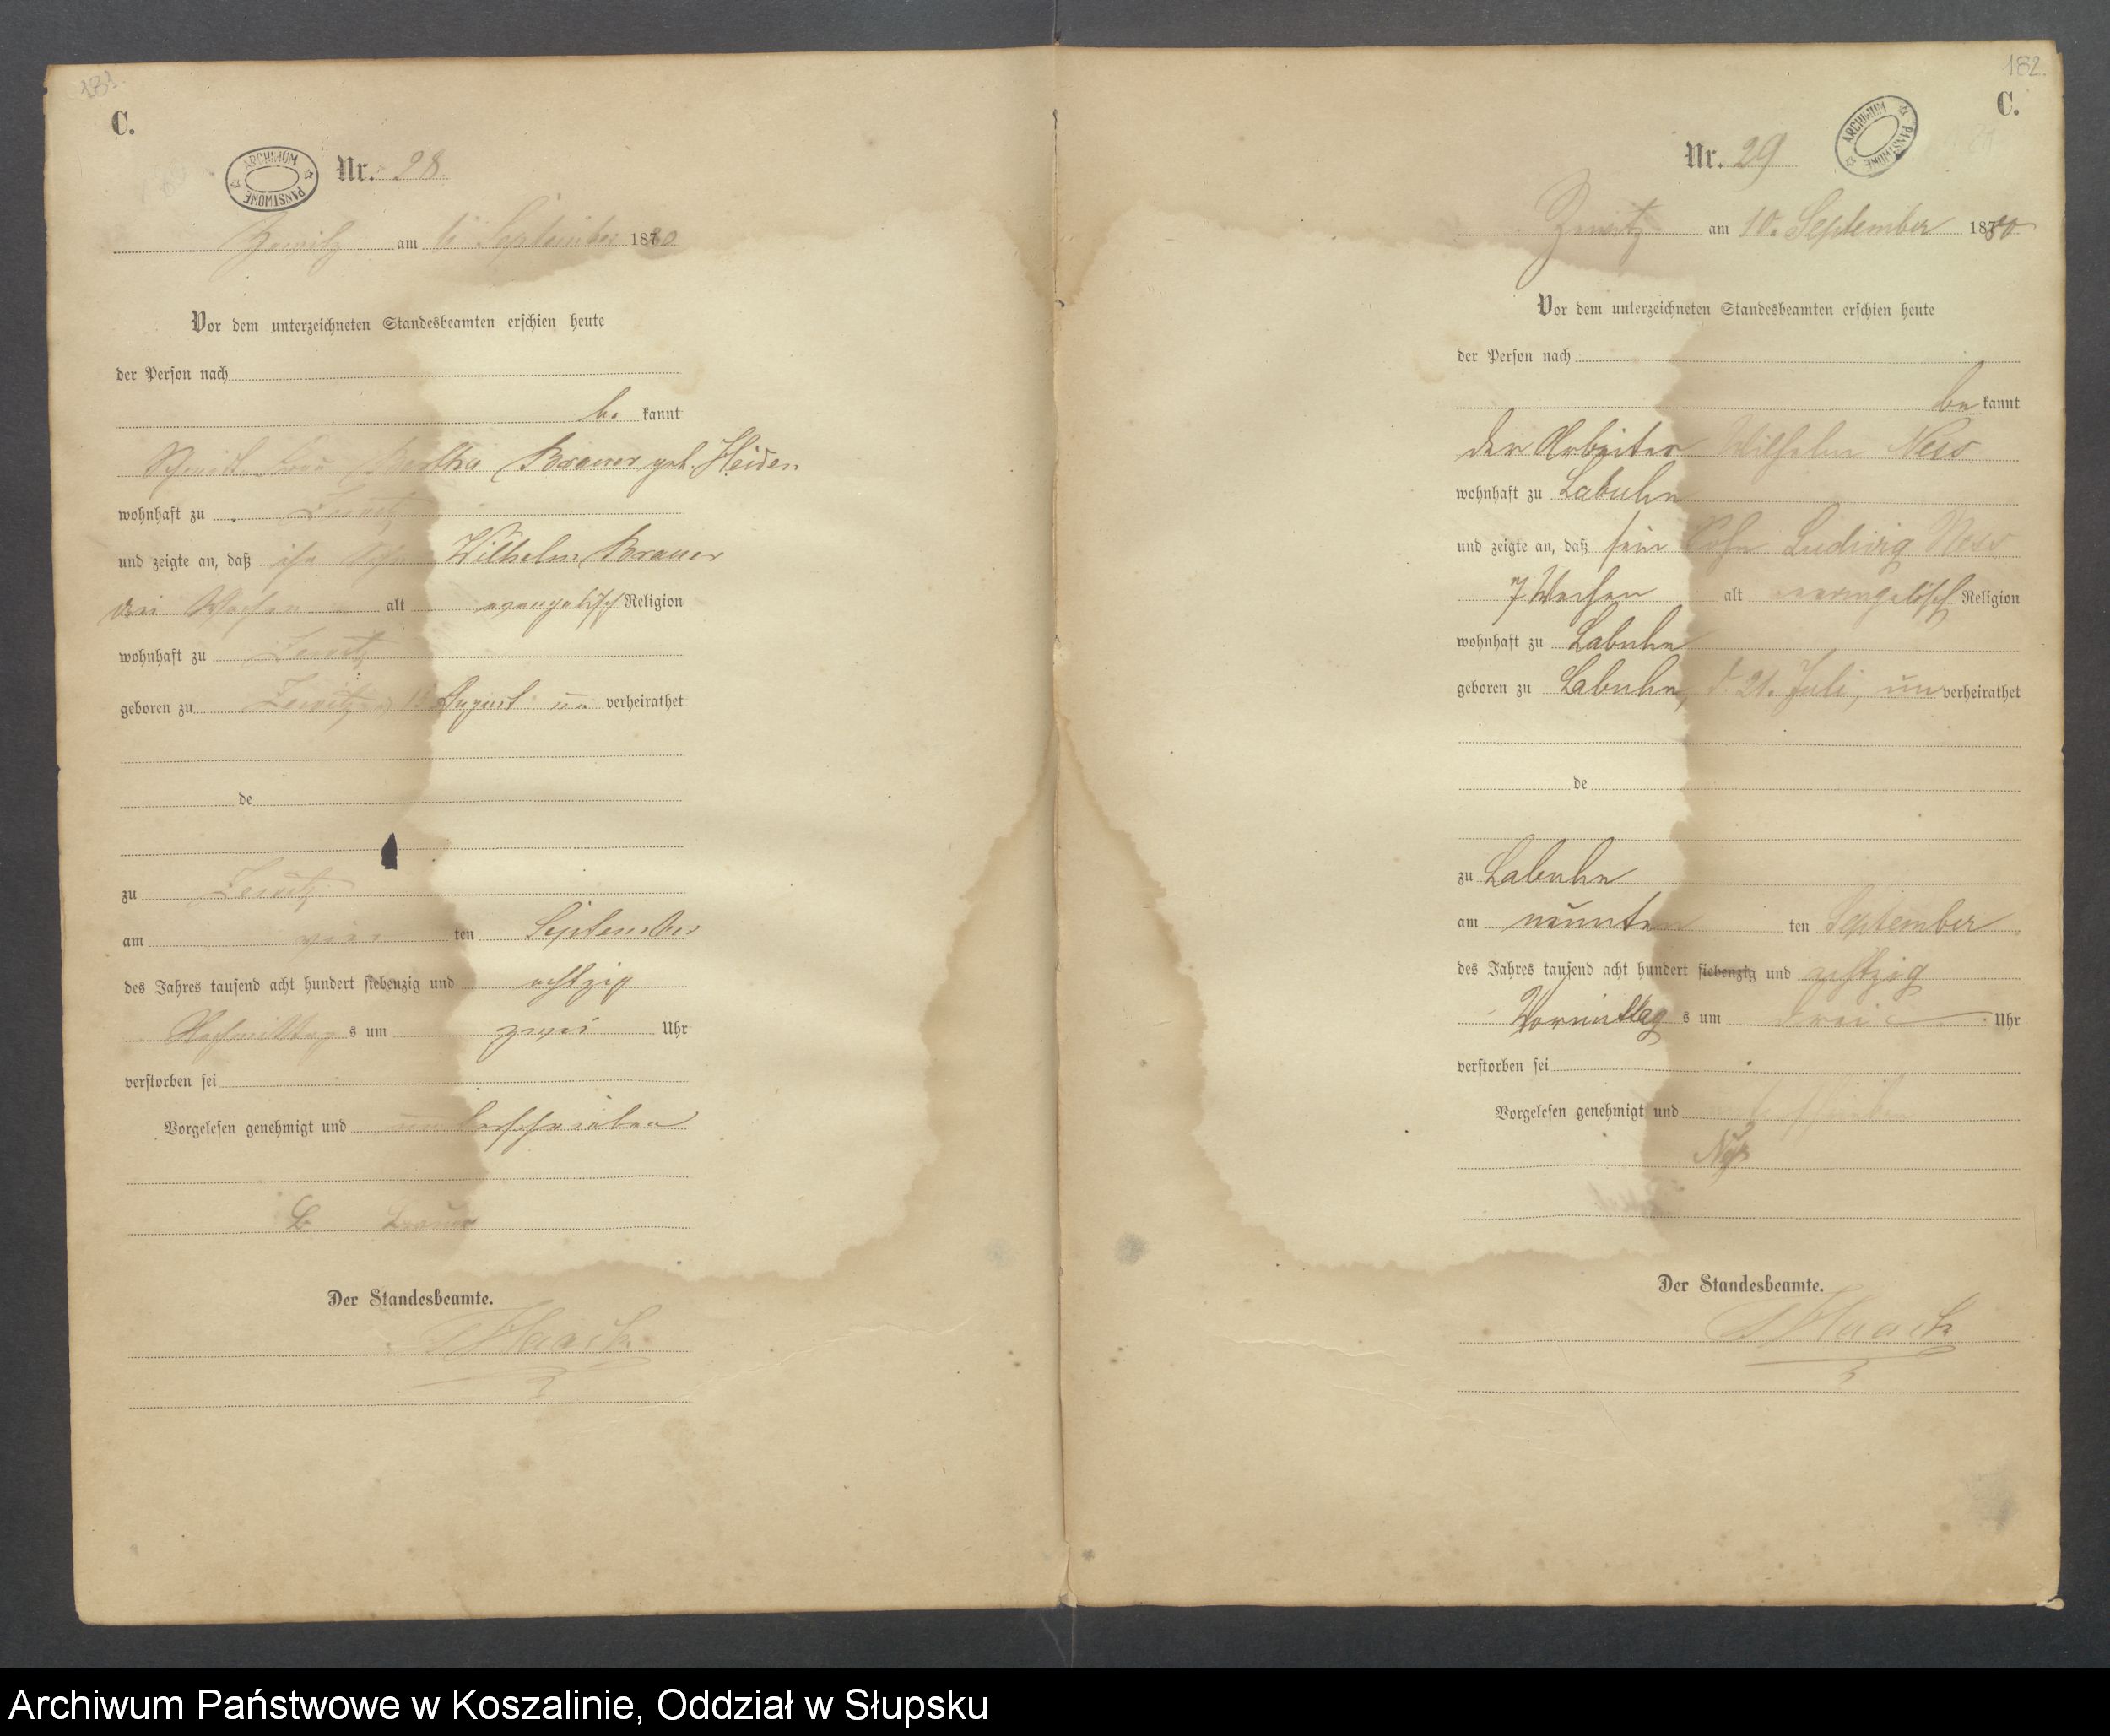 181.
C.
ARCHIWUM PAŃSTWOWE
Nr. 28.
am September 1880
Vor dem unterzeichneten Standesbeamten erschien heute
der Person nach
be kannt
Frau Bertha Brauer geb. Heiden
wohnhaft zu Zewitz
und zeigte an, daß ihr Sohn Wilhelm Brauer
drei Wochen alt evangelisch Religion
wohnhaft zu Zewitz
geboren zu Zewitz August un verheirathet
de
zu Zewitz
am ten September
des Jahres tausend acht hundert siebenzig und achtzig
Nachmittag s um zwei Uhr
verstorben sei
Vorgelesen genehmigt und unterschrieben
B Brauer
Der Standesbeamte.
Haack
182.
C.
ARCHIWUM PAŃSTWOWE
Nr. 29
Zewitz am 10. September 1880
Vor dem unterzeichneten Standesbeamten erschien heute
der Person nach
be kannt
der Arbeiter Wilhelm Ness
wohnhaft zu Labuhn
und zeigte an, daß sein Sohn Ludwig Ness
7 Wochen alt evangelisch Religion
wohnhaft zu Labuhn
geboren zu Labuhn, d. 21. Juli, un verheirathet
de
zu Labuhn
am neunten ten September
des Jahres tausend acht hundert siebenzig und achtzig
Vormittag s um drei Uhr
verstorben sei
Vorgelesen genehmigt und
Der Standesbeamte.
Haack
Archiwum Państwowe w Koszalinie, Oddział w Słupsku